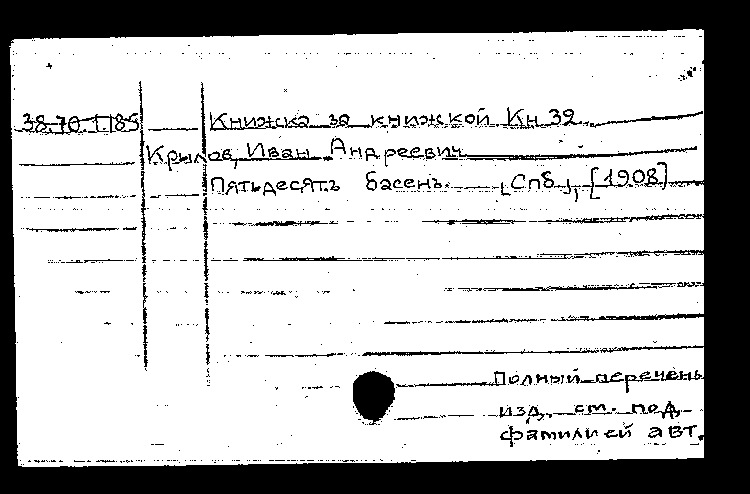 38.70.1.185 Книжка за книжкой Кн 39
Крылов, Иван Андреевич
Пятьдесятъ басенъ. [Спб.], [1908]
Полный перечень
изд. ст. под
фамилией авт.